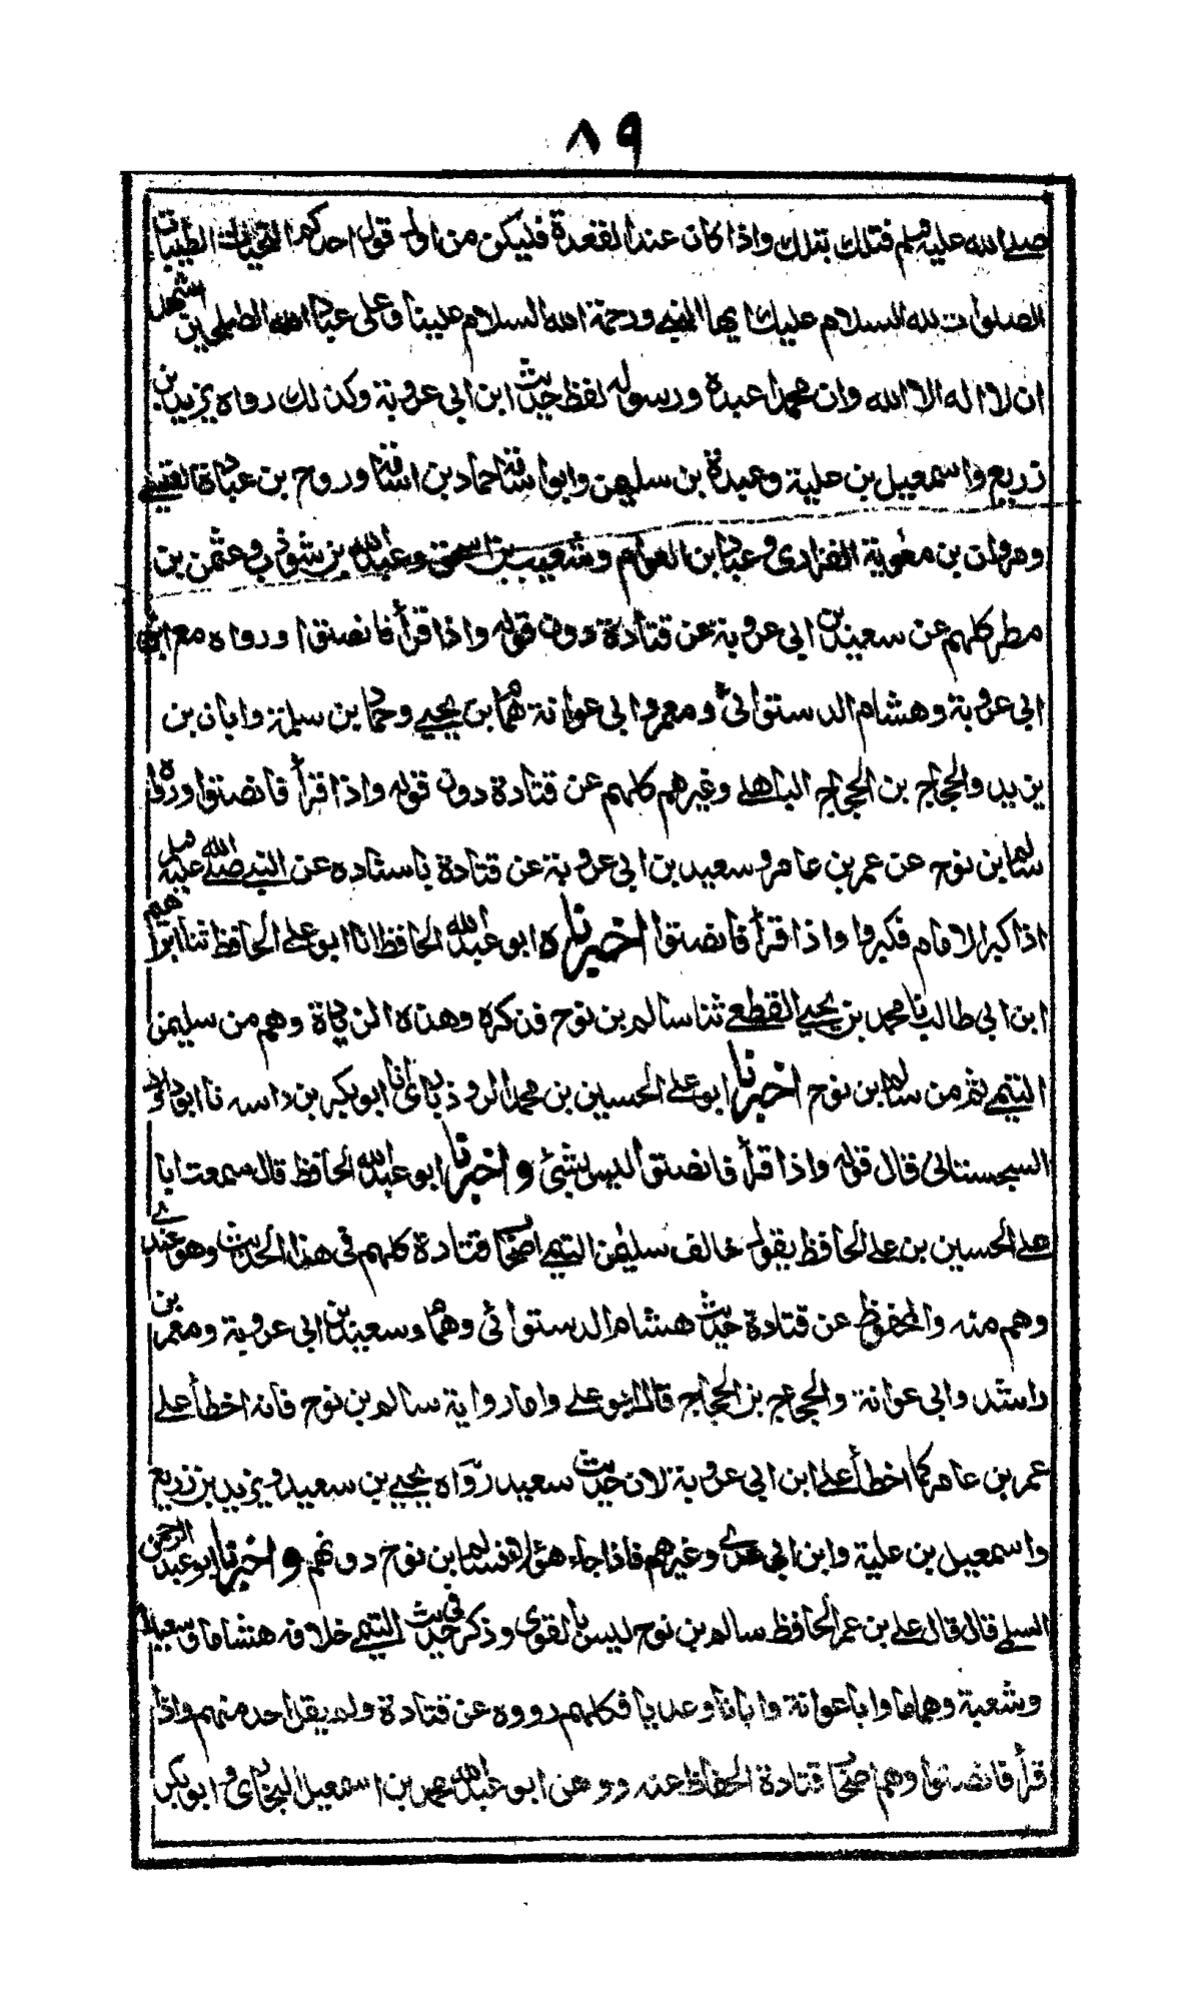 ٨٩
صلى الله عليه وسلم فتلك بتلك واذا كان عند القعدة فليكن من اول قول احدكم التحيات الطيبات
الصلوات لله السلام عليك ايها النبي ورحمة الله السلام علينا وعلى عباد الله الصلحين اشهد
ان لا اله الا الله وان محمدا عبده ورسوله لفظ حديث ابن ابى عروبة وكذلك رواه يزيد بن
زريع واسمعيل بن علية وعبدة بن سليمن وابو اسامة حماد بن اسامة وروح بن عبادة القيسي
ومروان بن معوية الفزارى وعباد ابن العوام وشعيب بن اسحق وعبد الله بن شوذب وعثمن بن
مطر كلهم عن سعيد بن ابى عروبة عن قتادة دون قوله واذا قرأ فانصتوا ورواه مع ابن
ابى عروبة وهشام الدستوائى ومعمر وابى عوانة همام بن يحيى وحماد بن سلمة وابان بن
يزيد والحجاج بن الحجاج الباهلى وغيرهم كلهم عن قتادة دون قوله واذا قرأ فانصتوا ورواه
سالم بن نوح عن عمر بن عامر وسعيد بن ابى عروبة عن قتادة باسناده عن النبي صلى الله عليه وسلم
اذا كبر الامام فكبروا واذا قرأ فانصتوا اخبرناه ابو عبد الله الحافظ انا ابو على الحافظ ثنا ابراهيم
ابن ابى طالب نا محمد بن يحيى القطعى ثنا سالم بن نوح فذكره وهذه الزيادة وهم من سليمن
التيمى ثم من سالم بن نوح اخبرنا ابو على الحسين بن محمد الروذبارى انا ابو بكر بن داسه نا ابو داود
السجستانى قال قوله واذا قرأ فانصتوا ليس بشئ واخبرنا ابو عبد الله الحافظ قال سمعت ابا
على الحسين بن على الحافظ يقول خالف سليمن التيمى اصحاب قتادة كلهم فى هذا الحديث وهو عندى
وهم منه والمحفوظ عن قتادة حديث هشام الدستوائى وهمام وسعيد بن ابى عروبة ومعمر بن
راشد وابى عوانة والحجاج بن الحجاج قال ابو على واما رواية سالم بن نوح فانه اخطأ على
عمر بن عامر كما اخطأ على ابن ابى عروبة لان حديث سعيد رواه يحيى بن سعيد ويزيد بن زريع
واسمعيل بن علية وابن ابى عدى وغيرهم فاذا جاء هؤلاء فسالم بن نوح دونهم واخبرنا ابو عبد الرحمن
السلمى قال قال على بن عمر الحافظ سالم بن نوح ليس بالقوى وذكر فى حديث التيمى خلافه هشاما وسعيدا
وشعبة وهماما وابا عوانة وابانا وعديا فكلهم رووه عن قتادة ولم يقل احد منهم واذا
قرأ فانصتوا وهم اصحاب قتادة الحفاظ عنه ووهن ابو عبد الله محمد بن اسمعيل البخارى وابو بكر